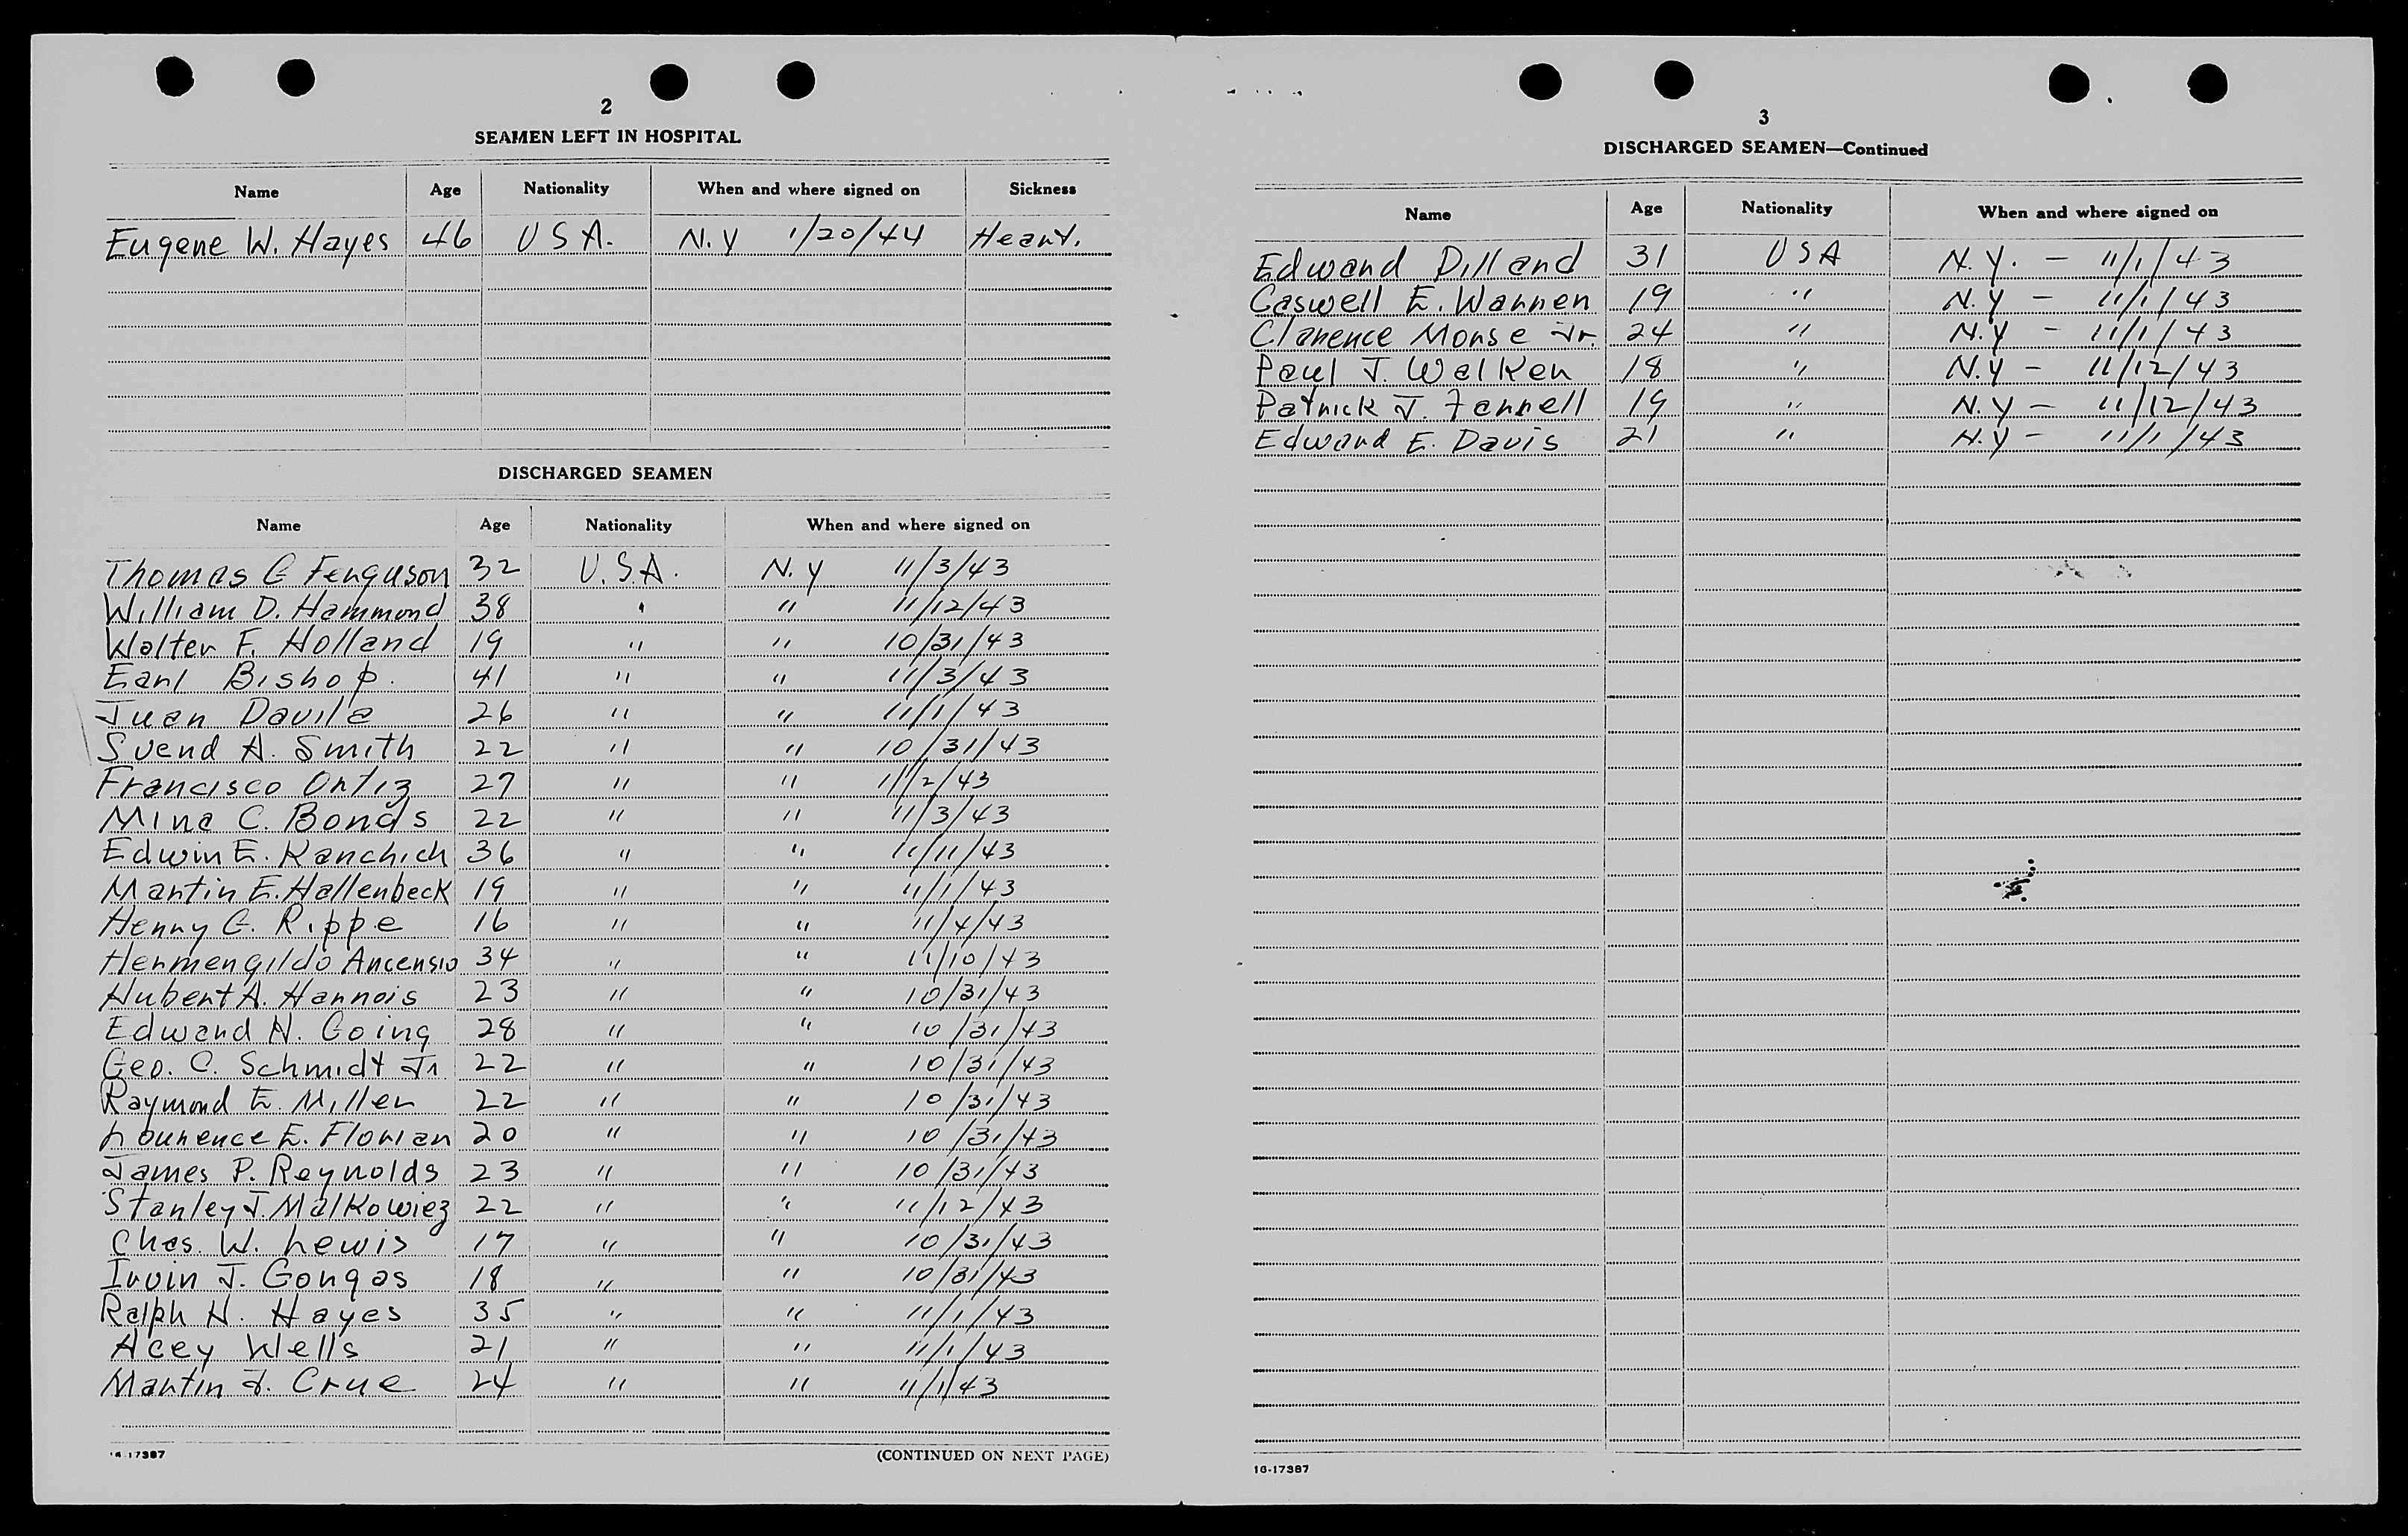 2
SEAMEN LEFT IN HOSPITAL
Name Age Nationality When and where signed on Sickness
Eugene W. Hayes 46 USA. N.Y 1/20/44 Heart.
DISCHARGED SEAMEN
Name Age Nationality When and where signed on
Thomas G Ferguson 32 U.S.A. N.Y 11/3/43
William D. Hammond 38 " " 11/12/43
Walter F. Holland 19 " " 10/31/43
Earl Bishop. 41 " " 11/3/43
Juan Davila 26 " " 11/1/43
Svend A. Smith 22 " " 10/31/43
Francisco Ortiz 27 " " 11/2/43
Mina C. Bonds 22 " " 11/3/43
Edwin E. Kanchich 36 " " 11/11/43
Martin E. Hallenbeck 19 " " 11/1/43
Henry G. Rippe 16 " " 11/4/43
Hermengildo Ancensio 34 " " 11/10/43
Hubert A. Hannois 23 " " 10/31/43
Edward N. Going 28 " " 10/31/43
Geo. C. Schmidt Jr 22 " " 10/31/43
Raymond E. Miller 22 " " 10/31/43
Lourence E. Florian 20 " " 10/31/43
James P. Reynolds 23 " " 10/31/43
Stanley J. Malkowiez 22 " " 11/12/43
Chas. W. Lewis 17 " " 10/31/43
Irvin J. Gongas 18 " " 10/31/43
Ralph H. Hayes 35 " " 11/1/43
Acey Wells 21 " " 11/1/43
Martin J. Crue 24 " " 11/1/43
16-17387 (CONTINUED ON NEXT PAGE)
3
DISCHARGED SEAMEN—Continued
Name Age Nationality When and where signed on
Edward Dilland 31 USA N.Y. - 11/1/43
Caswell E. Warren 19 " N.Y - 11/1/43
Clarence Morse Jr. 24 " N.Y - 11/1/43
Paul J. Walker 18 " N.Y - 11/12/43
Patrick J. Farrell 19 " N.Y - 11/12/43
Edward E. Davis 21 " N.Y - 11/1/43
16-17387